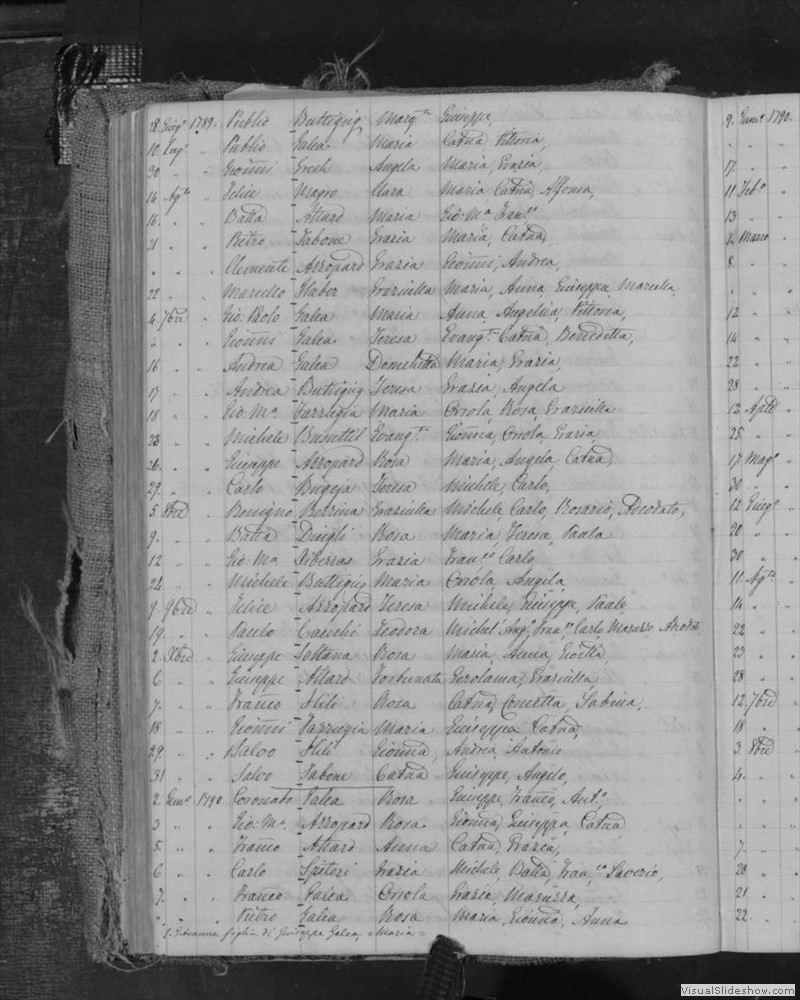 28 Giug.o 1789. Publio Buttigieg Marg.ta Giuseppe,
10 Lug.o " Publio Galea Maria Catña, Vittoria,
30 " " Gioñni Grech Angela Maria, Grazia,
14 Ag.to " Felice Magro Clara Maria, Catña, Alfonsa,
16 " " Batta Attard Maria Gio: M.a Fran.co
21 " " Pietro Tabone Grazia Maria, Catña,
" " " Clemente Azzopard Grazia Gioñni, Andrea,
22 " " Marcello Haber Graziulla Maria, Anna, Giuseppa, Marcella,
4 7bre " Gio: Paolo Galea Maria Anna, Angelica, Vittoria,
" " " Gioñni Galea Teresa Evang.ta Catña, Benedetta,
16 " " Andrea Galea Maria, Grazia,
17 " " Andrea Buttigieg Teresa Grazia, Angela
18 " " Gio: M.a Farrugia Maria Orsola, Rosa, Graziulla
23 " " Michele Busuttil Evang.ta Gioñna, Orsola, Grazia,
26 " " Giuseppe Azzopard Rosa Maria, Angela, Catña,
29 " " Carlo Bugeja Teresa Michele, Carlo,
5 8bre " Benigno Graziulla Michele, Carlo, Rosario, Adeodato,
9 " " Batta Dingli Rosa Maria, Teresa, Paola
12 " " Gio: M.a Grazia Fran.co Carlo
24 " " Michele Buttigieg Maria Orsola, Angela,
9 9bre " Felice Azzopard Teresa Michele, Giuseppe, Paolo,
19 " " Paolo Cauchi Teodora Michel Ang.o Fran.co Carlo
2 Xbre " Giuseppe Soltana Rosa Maria, Anna,
6 " " Giuseppe Attard Fortunata Gerolama, Graziulla
7 " " Franco Hili Rosa Catña, Concetta, Sabina,
18 " " Gioñni Farrugia Maria Giuseppa, Catña,
29 " " Salvo Hili Gioñna, Andrea, Antonio
31 " " Salvo Tabone Catña Giuseppe, Angelo,
2 Genn.o 1790 Coronato Galea Rosa Giuseppe, Franco, Ant.o
3 " " Gio: M.a Azzopard Rosa Gioñna, Giuseppa, Catña
5 " " Franco Attard Anna Catña, Grazia,
6 " " Carlo Spiteri Grazia Michele, Batta, Fran.co Saverio,
7 " " Franco Galea Orsola Grazia, Maruzza,
" " " Pietro Galea Rosa Maria, Gioñna, Anna
1. Giovanna figlia di Giuseppe Galea, e Maria
9. Genn.o 1790.
" " "
17. " "
11 Feb.o "
13 " "
Marzo "
8. " "
" " "
12 " "
14 " "
22 " "
28 " "
12 Aple "
25 " "
17 Mag.o "
30 " "
12 Giug.o "
20 " "
30 " "
11 Ag.to "
14 " "
22 " "
23 " "
28 " "
12 7bre "
18 " "
3 8bre "
4 " "
" " "
" " "
7 " "
20 " "
21 " "
22 " "
VisualSlideshow.com